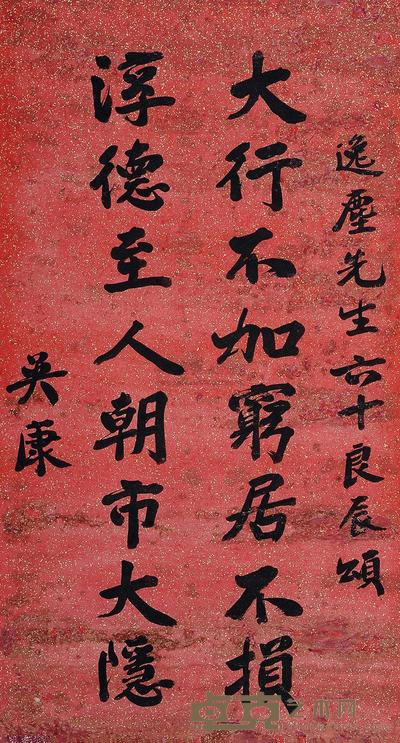 逸塵先生六十良辰頌
大行不加窮居不損
淳德至人朝市大隱
吴康
艺术网